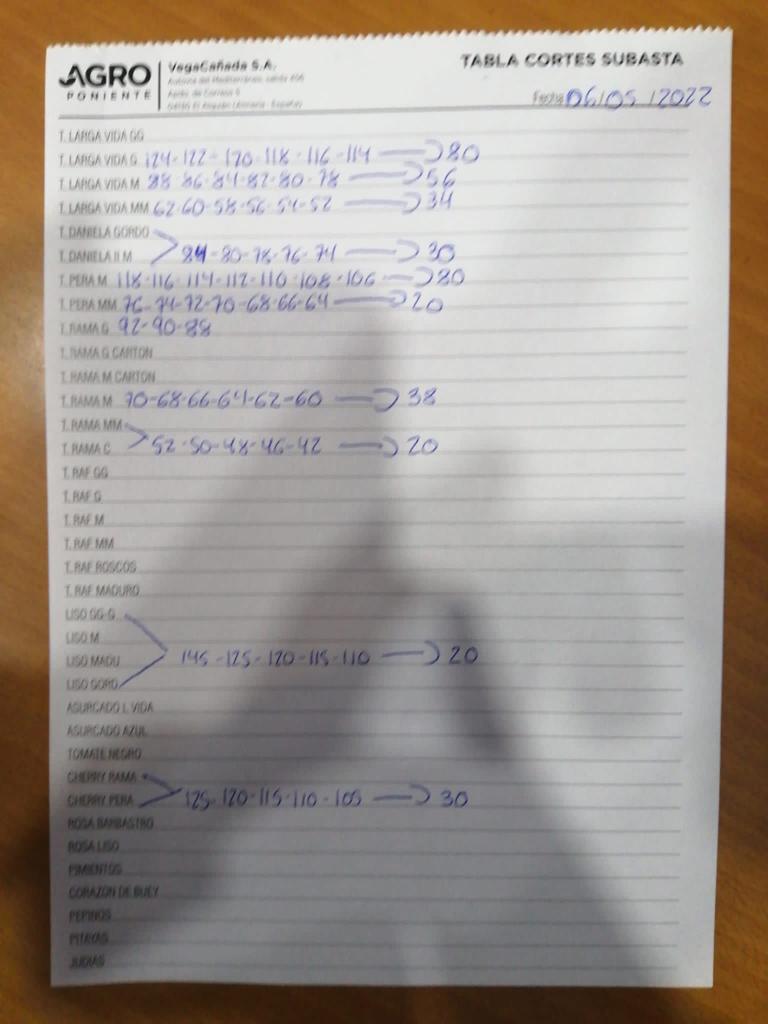 AGRO
PONIENTE
VegaCañada S.A.
Autovía del Mediterráneo, salida 456
TABLA CORTES SUBASTA
Fecha 06/05/2022
T. LARGA VIDA GG
T. LARGA VIDA G 124-122-120-118-116-114 80
T. LARGA VIDA M 88-86-84-82-80-78 56
T. LARGA VIDA MM 62-60-58-56-54-52 34
T. DANIELA GORDO
T. DANIELA II M 84-80-78-76-74 30
T. PERA M 118-116-114-112-110-108-106 80
T. PERA MM 76-74-72-70-68-66-64 20
T. RAMA G 92-90-88
T. RAMA G CARTON
T. RAMA M CARTON
T. RAMA M 70-68-66-64-62-60 38
T. RAMA MM
T. RAMA C 52-50-48-46-42 20
T. RAF GG
T. RAF G
T. RAF M
T. RAF MM
T. RAF ROSCOS
T. RAF MADURO
LISO GG-G
LISO M
LISO MADU 145-125-120-115-110 20
LISO GORD
ASURCADO L VIDA
ASURCADO AZUL
TOMATE NEGRO
CHERRY RAMA
CHERRY PERA 125-120-115-110-105 30
ROSA BARBASTRO
ROSA LISO
PIMIENTOS
CORAZON DE BUEY
PEPINOS
PITAYAS
JUDIAS